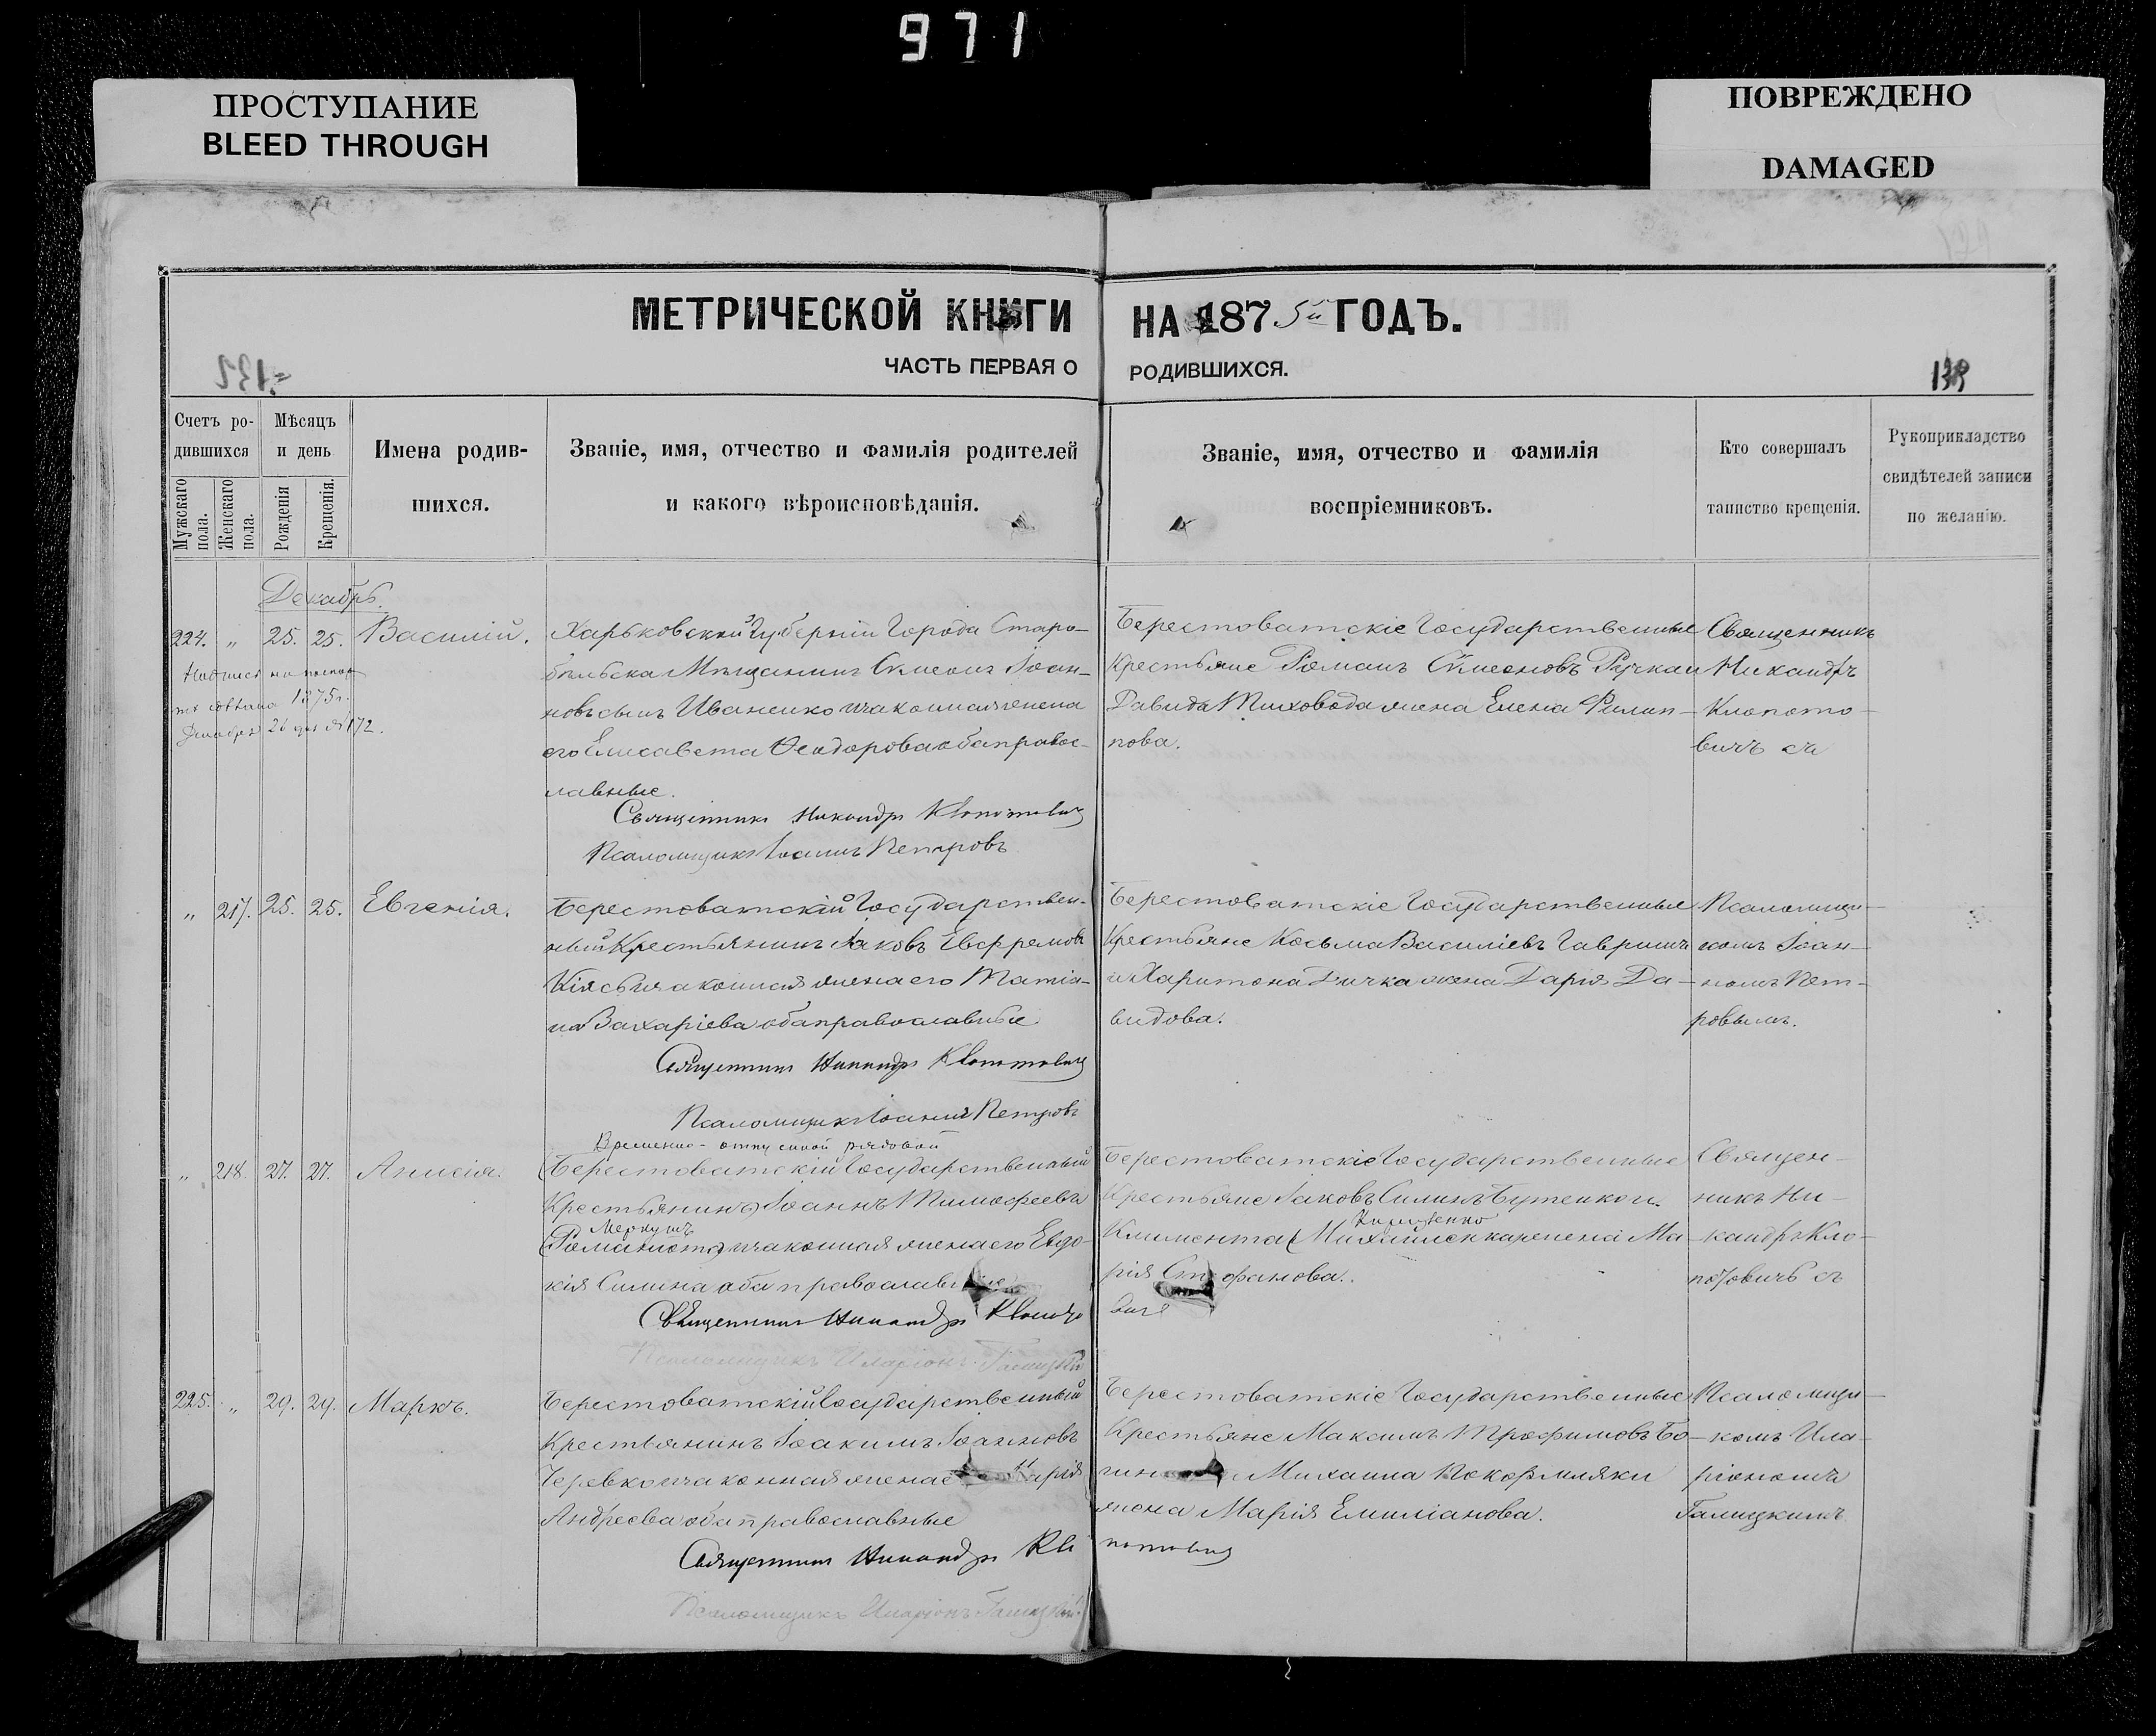 971
ПРОСТУПАНИЕ
BLEED THROUGH
ПОВРЕЖДЕНО
DAMAGED
МЕТРИЧЕСКОЙ КНИГИ НА 1875й ГОДЪ.
ЧАСТЬ ПЕРВАЯ О РОДИВШИХСЯ.
139
Счетъ ро-
дившихся
Мужскаго пола.
Женскаго пола.
Мѣсяцъ
и день
Рожденія
Крещенія.
Имена родив-
шихся.
Званіе, имя, отчество и фамилія родителей
и какого вѣроисповѣданія.
Званіе, имя, отчество и фамилія
воспріемниковъ.
Кто совершалъ
таинство крещенія.
Рукоприкладство
свидѣтелей записи
по желанію.
Декабрь.
224. „ 25. 25. Василій.
1875г.
Декабря 26 дня №172.
Харьковской Губерніи Города Старо-
бѣльска Мѣщанинъ Симеонъ Іоан-
новъ сынъ Иваненко и законная жена
его Елисавета Ѳеодорова оба правос-
лавные.
Священникъ Никандръ Клопотовичъ
Псаломщикъ Іоаннъ Петровъ
Берестоватскіе Государственные
Крестьяне Романъ Симеоновъ Ручка и
Давида Тиховода жена Елена Филип-
пова.
Священникъ
Никандръ
Клопото-
вичъ съ
„ 217. 25. 25. Евгенія.
Берестоватскій Государствен-
ный Крестьянинъ Іаковъ Ефремовъ
и законная жена его Татіа-
на Захаріева оба православные
Священникъ Никандръ Клопотовичъ
Псаломщикъ Іоаннъ Петровъ
Берестоватскіе Государственные
Крестьяне Косьма Василіевъ Гавришъ
и Харитона Дичка жена Дарія Да-
видова.
Псаломщи-
комъ Іоан-
номъ Пет-
ровымъ.
Временно-отпускной рядовой
„ 218. 27. 27. Анисія.
Берестоватскій Государственный
Крестьянинъ Іоаннъ Тимофеевъ
и законная жена его Евдо-
кія Силина оба православные
Священникъ Никандръ Клопото
вичъ
Псаломщикъ Иларіонъ Галицкій
Берестоватскіе Государственные
Крестьяне Іаковъ Силинъ Бутенко и
Климента жена Ма-
рія Стефанова.
Священ-
никъ Ни-
кандръ Кло-
потовичъ съ
225. „ 29. 29. Маркъ.
Берестоватскій Государственный
Крестьянинъ Іоакимъ Іоанновъ
Черевко и законная жена его Марія
Андреева оба православные
Священникъ Никандръ Кло
потовичъ
Псаломщикъ Иларіонъ Галицкій.
Берестоватскіе Государственные
Крестьяне Максимъ Трофимовъ
Михаила Покормляки
жена Марія Емиліанова.
Псаломщи-
комъ Ила-
ріономъ
Галицкимъ.